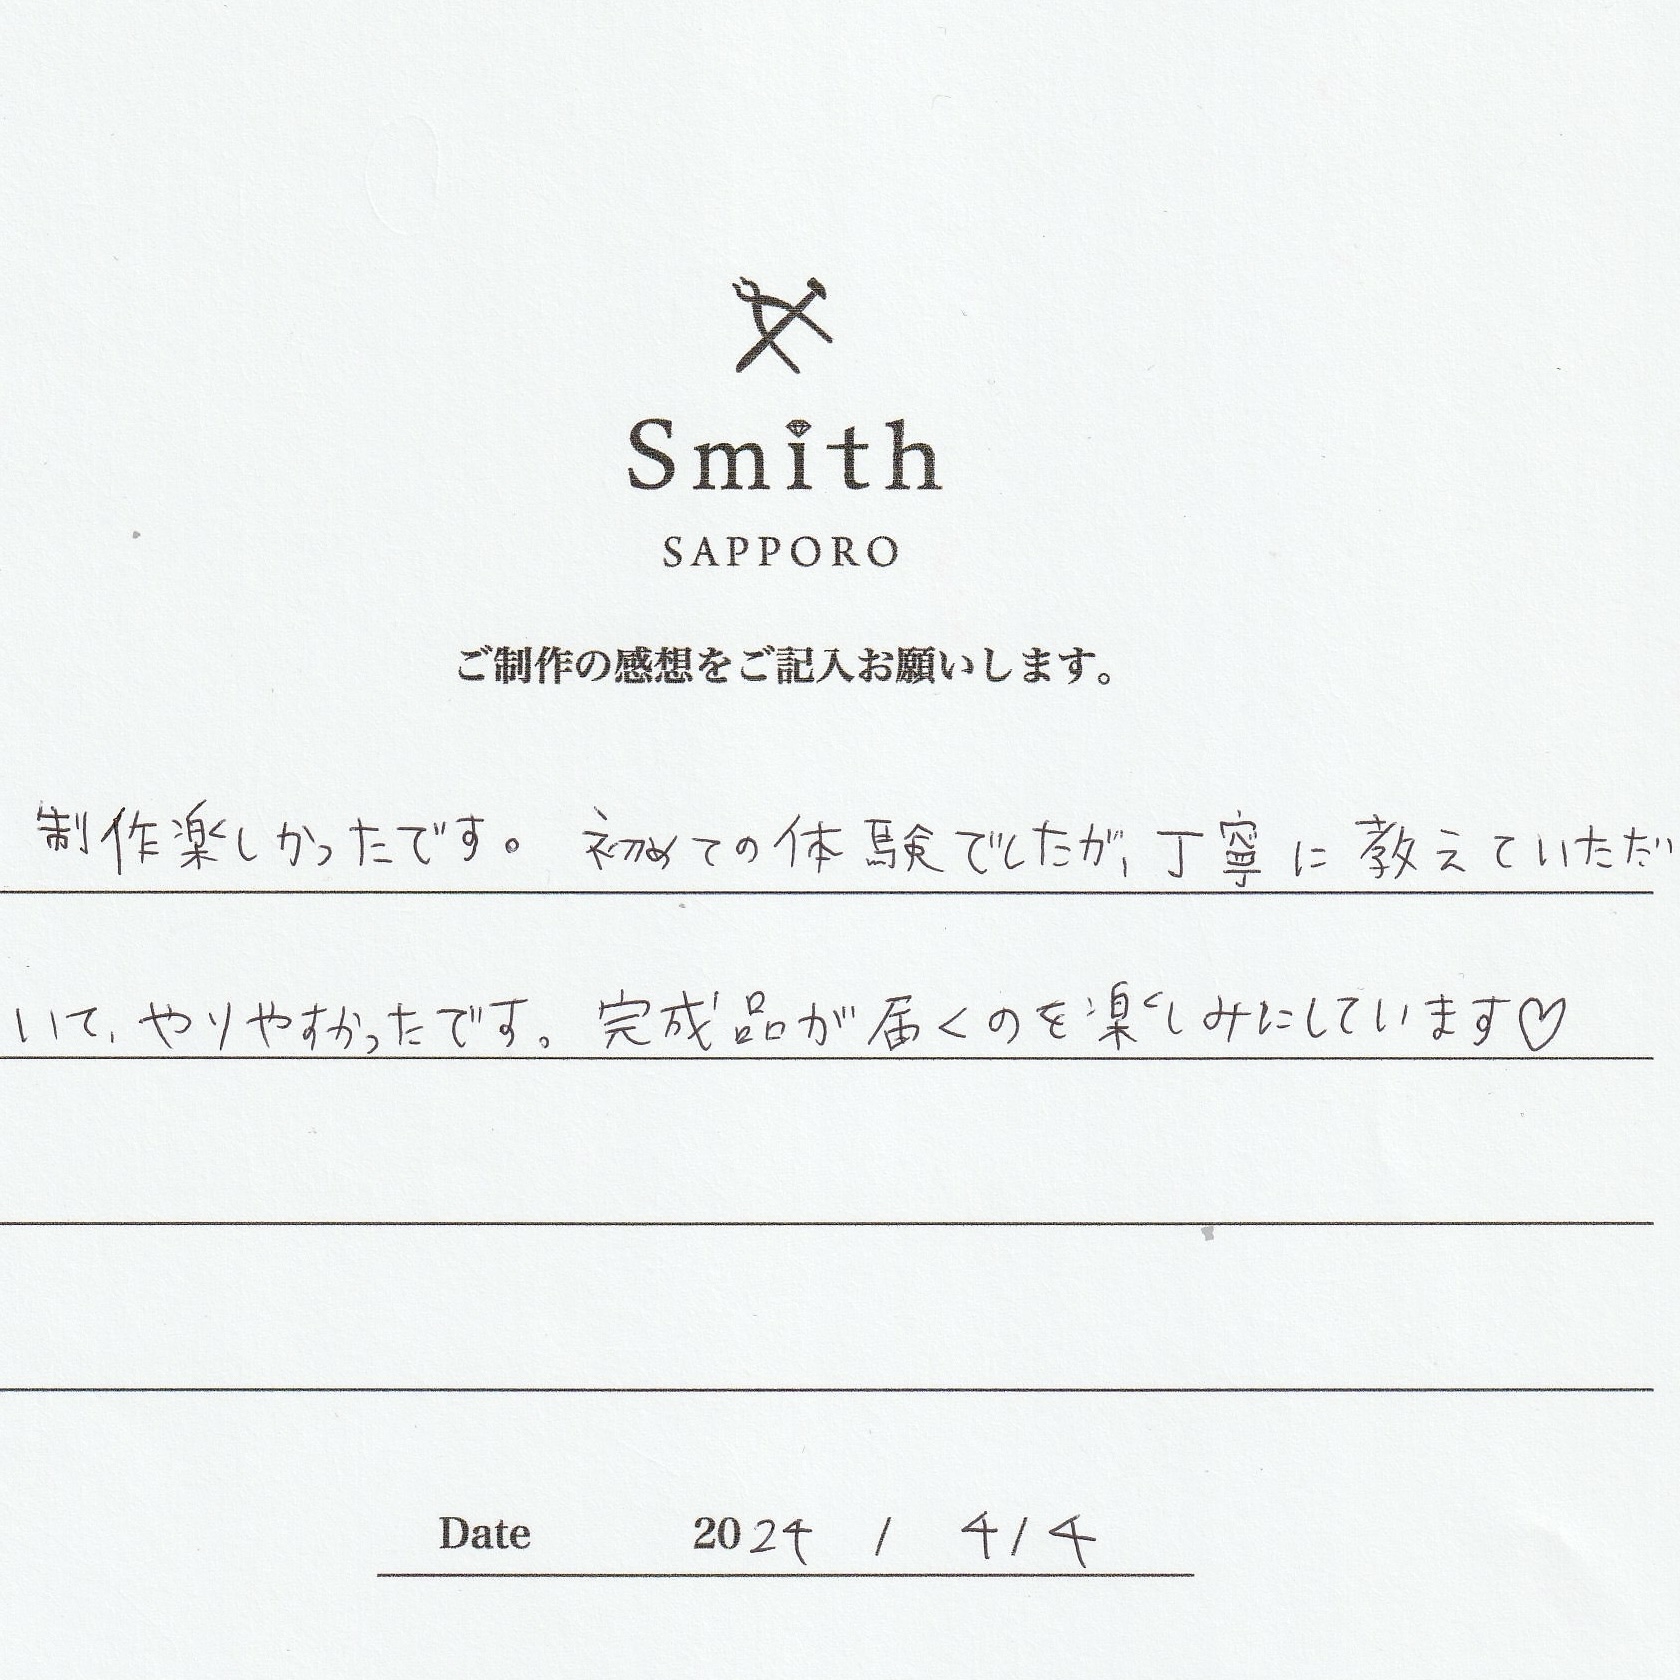 Smith
SAPPORO
ご制作の感想をご記入お願いします。
制作楽しかったです。初めての体験でしたが、丁寧に教えていただ
いて、やりやすかったです。完成品が届くのを楽しみにしています♡
Date 2024 / 4 / 4